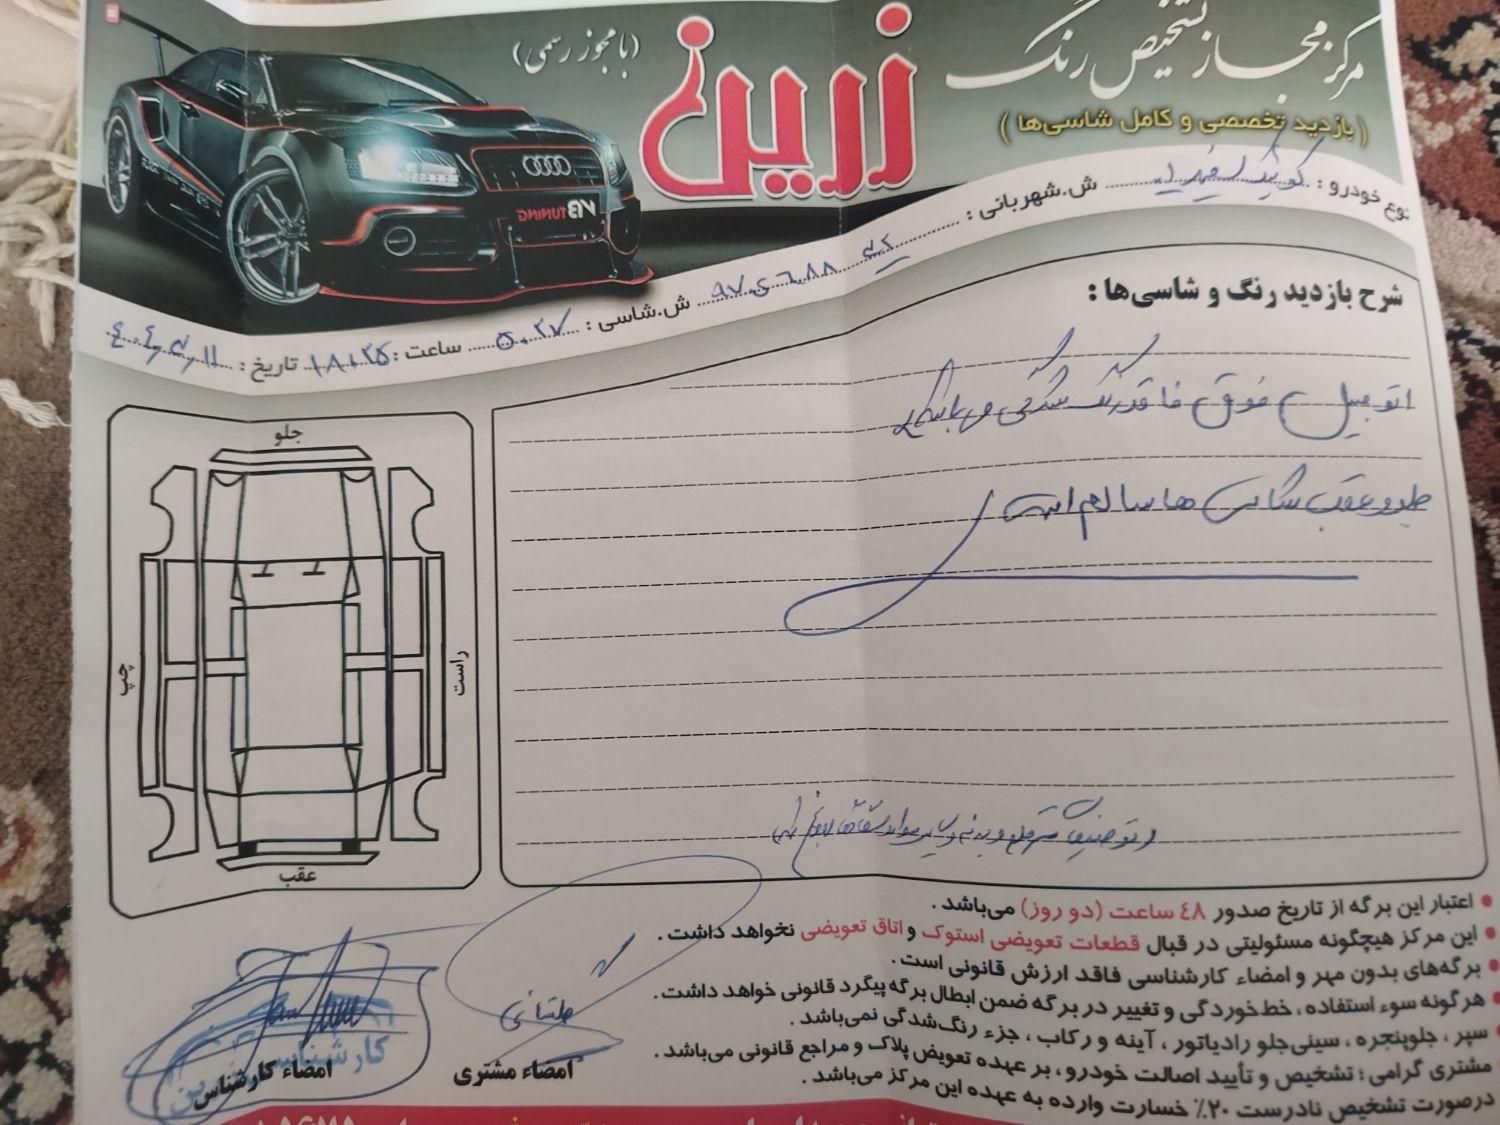 مرکز مجاز تشخیص رنگ
زرین
(با مجوز رسمی)
(بازدید تخصصی و کامل شاسی‌ها)
نوع خودرو : کوئیک سفید
ش.شهربانی :
ش.شاسی :
ساعت : ۱۸:۲۵
تاریخ :
شرح بازدید رنگ و شاسی‌ها :
اتومبیل فوق فاقد رنگ شدگی می باشد
جلو و عقب شاسی ها سالم است
جلو
چپ
راست
عقب
● اعتبار این برگه از تاریخ صدور ۴۸ ساعت (دو روز) می‌باشد .
● این مرکز هیچگونه مسئولیتی در قبال قطعات تعویضی استوک و اتاق تعویضی نخواهد داشت .
● برگه‌های بدون مهر و امضاء کارشناسی فاقد ارزش قانونی است .
● هرگونه سوء استفاده ، خط‌خوردگی و تغییر در برگه ضمن ابطال برگه پیگرد قانونی خواهد داشت .
● سپر ، جلوپنجره ، سینی‌جلو رادیاتور ، آینه و رکاب ، جزء رنگ‌شدگی نمی‌باشد .
مشتری گرامی ؛ تشخیص و تأیید اصالت خودرو ، بر عهده تعویض پلاک و مراجع قانونی می‌باشد .
درصورت تشخیص نادرست ۲۰٪ خسارت وارده به عهده این مرکز می‌باشد .
امضاء مشتری
امضاء کارشناس